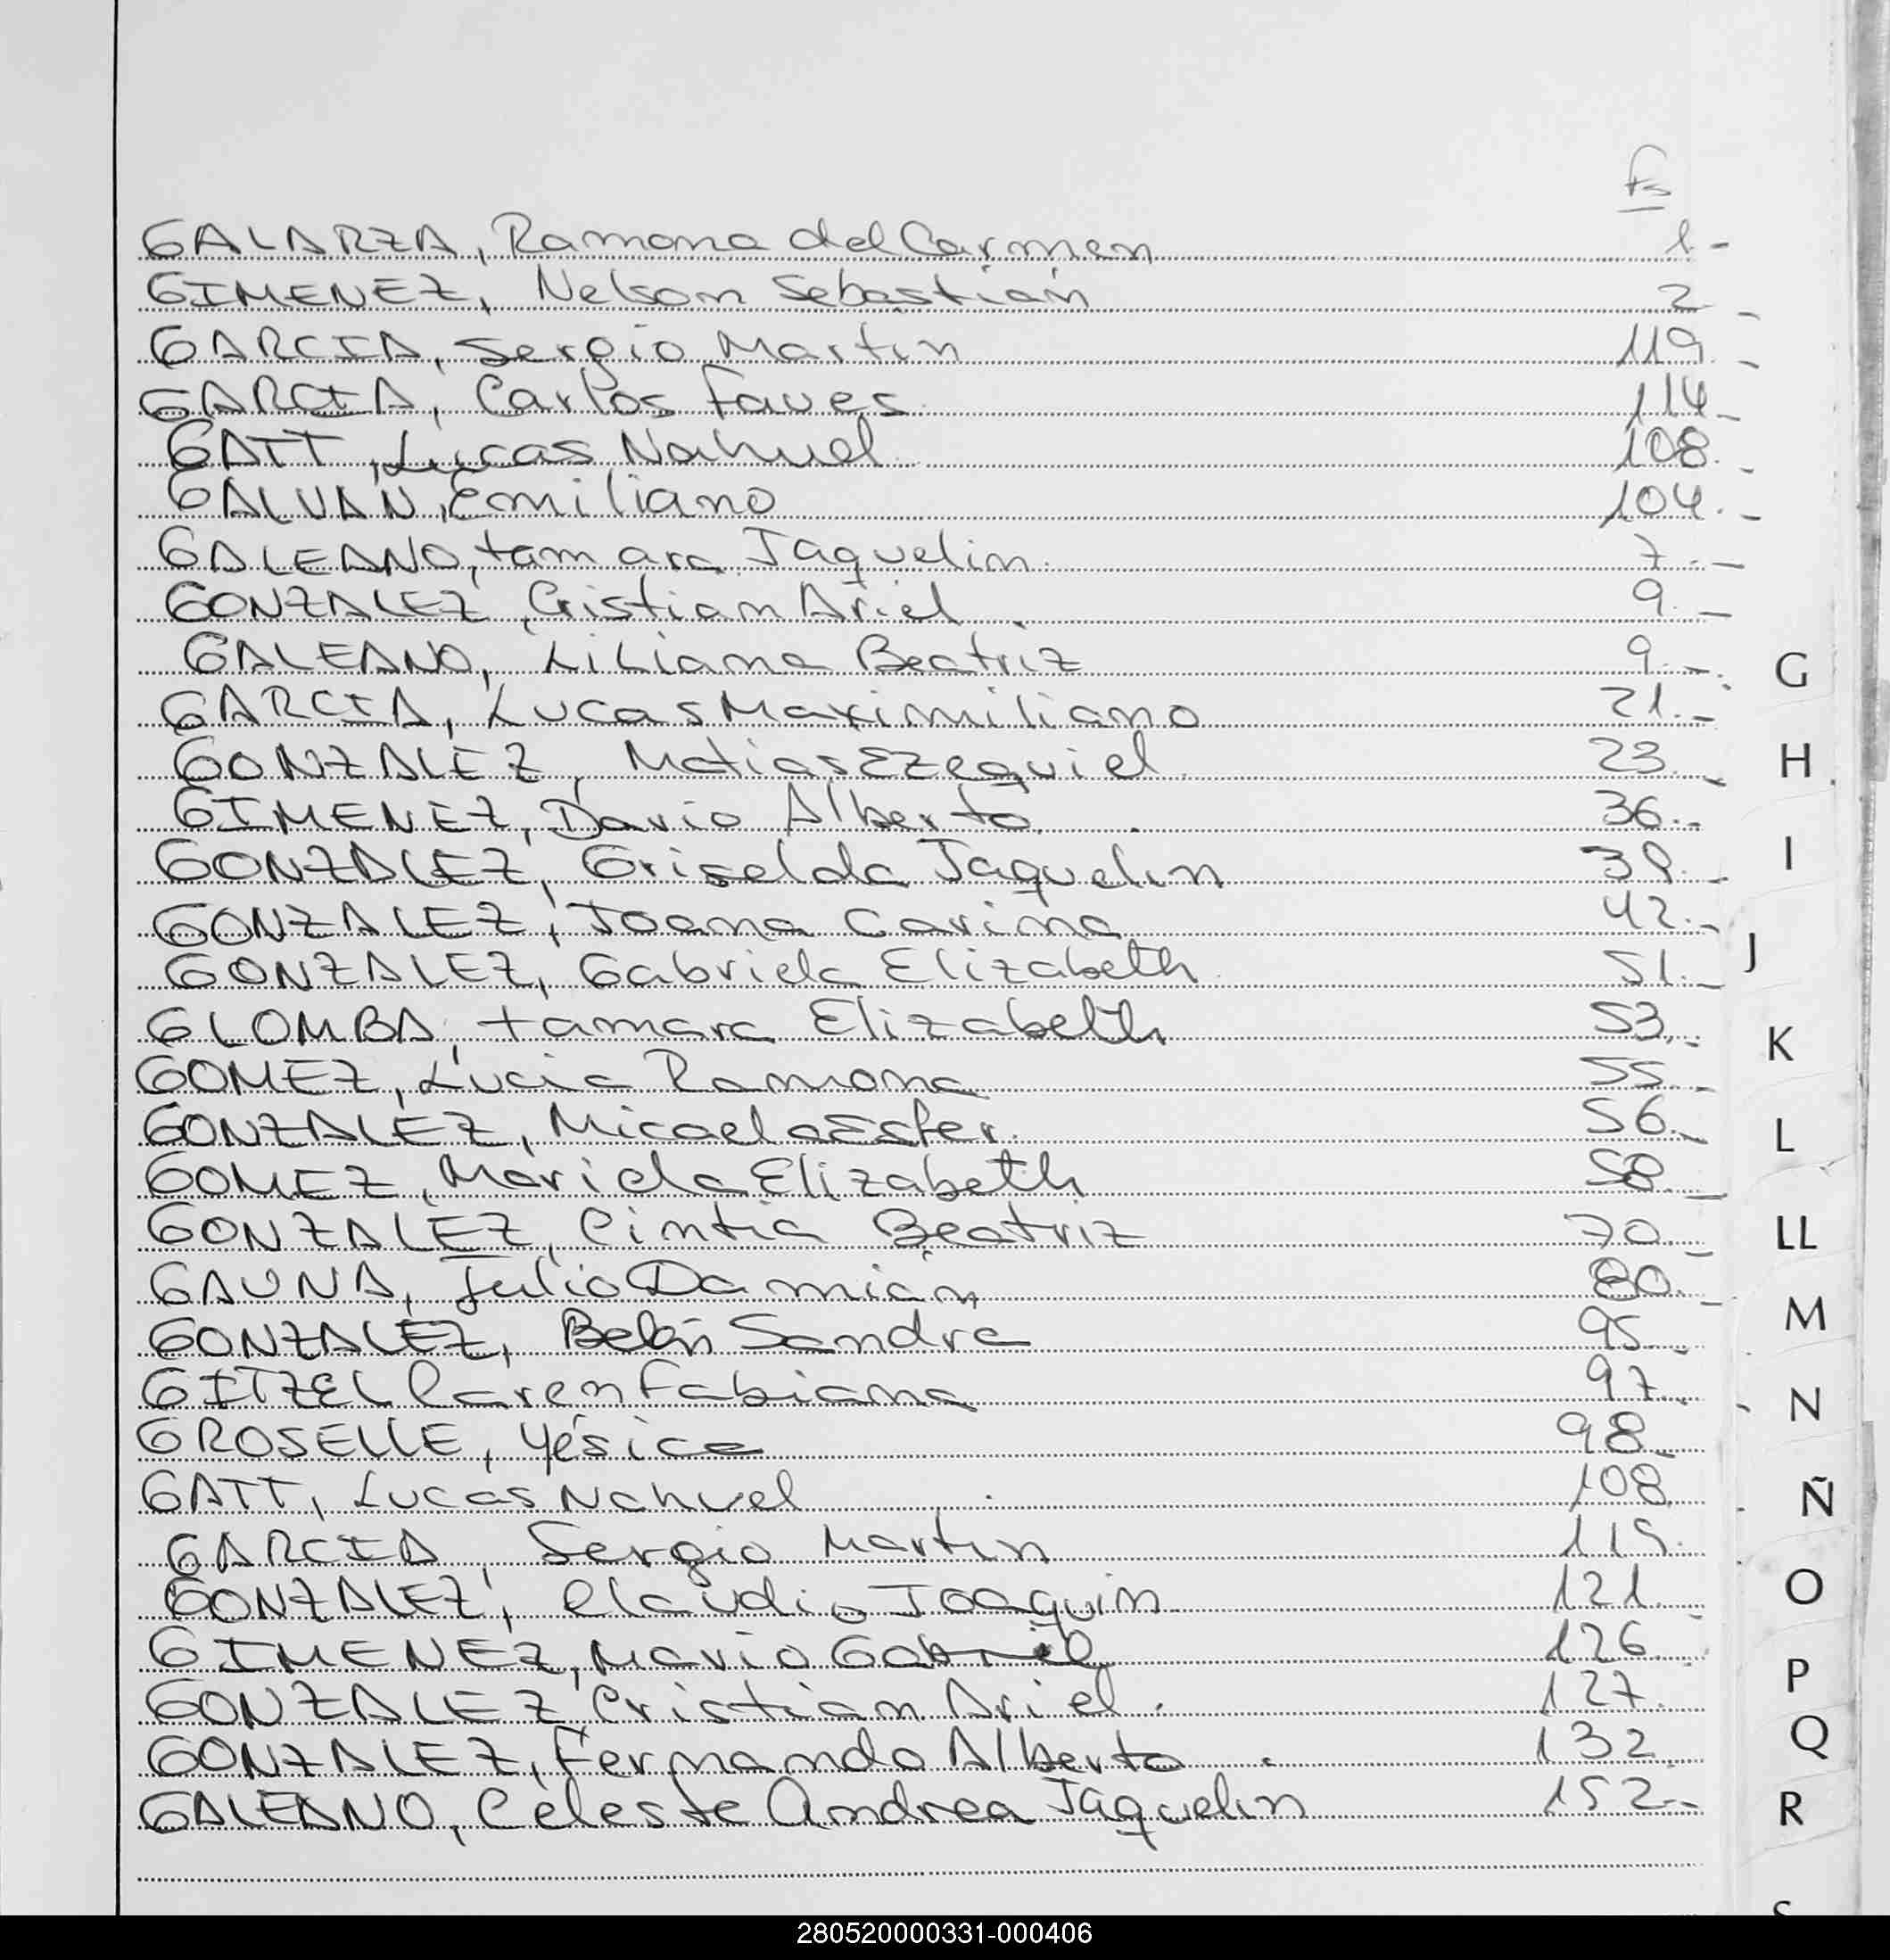 fs
GALARZA, Ramona del Carmen 1.-
GIMENEZ, Nelson Sebastián 2.-
GARCIA, Sergio Martin 119.-
GARCIA, Carlos Faves 114.-
GATT, Lucas Nahuel 108.-
GALVAN, Emiliano 104.-
GALEANO, tamara Jaquelin 7.-
GONZALEZ, Cristian Ariel 9.-
GALEANO, Liliana Beatriz 9.-
GARCIA, Lucas Maximiliano 21.-
GONZALEZ, Matias Ezequiel 23.-
GIMENEZ, Dario Alberto 36.-
GONZALEZ, Griselda Jaquelin 39.-
GONZALEZ, Joana Carina 42.-
GONZALEZ, Gabriela Elizabeth 51.-
GLOMBA, tamara Elizabeth 53.-
GOMEZ, Lucia Ramona 55.-
GONZALEZ, Micaela Ester 56.-
GOMEZ, Mariela Elizabeth 58.-
GONZALEZ, Cintia Beatriz 70.-
GAUNA, Julio Damián 80.-
GONZALEZ, Belén Sandra 95.-
GITZEL Caren Fabiana 97.-
GROSELLE, Yésica 98.-
GATT, Lucas Nahuel 108.
GARCIA, Sergio Martin 119.
GONZALEZ, Claudio Joaquin 121.-
GIMENEZ, Mario Gabriel 126.-
GONZALEZ Cristian Ariel. 127.
GONZALEZ, Fernando Alberto. 132.
GALEANO, Celeste Andrea Jaquelin 152.-
G
H
I
J
K
L
LL
M
N
Ñ
O
P
Q
R
280520000331-000406